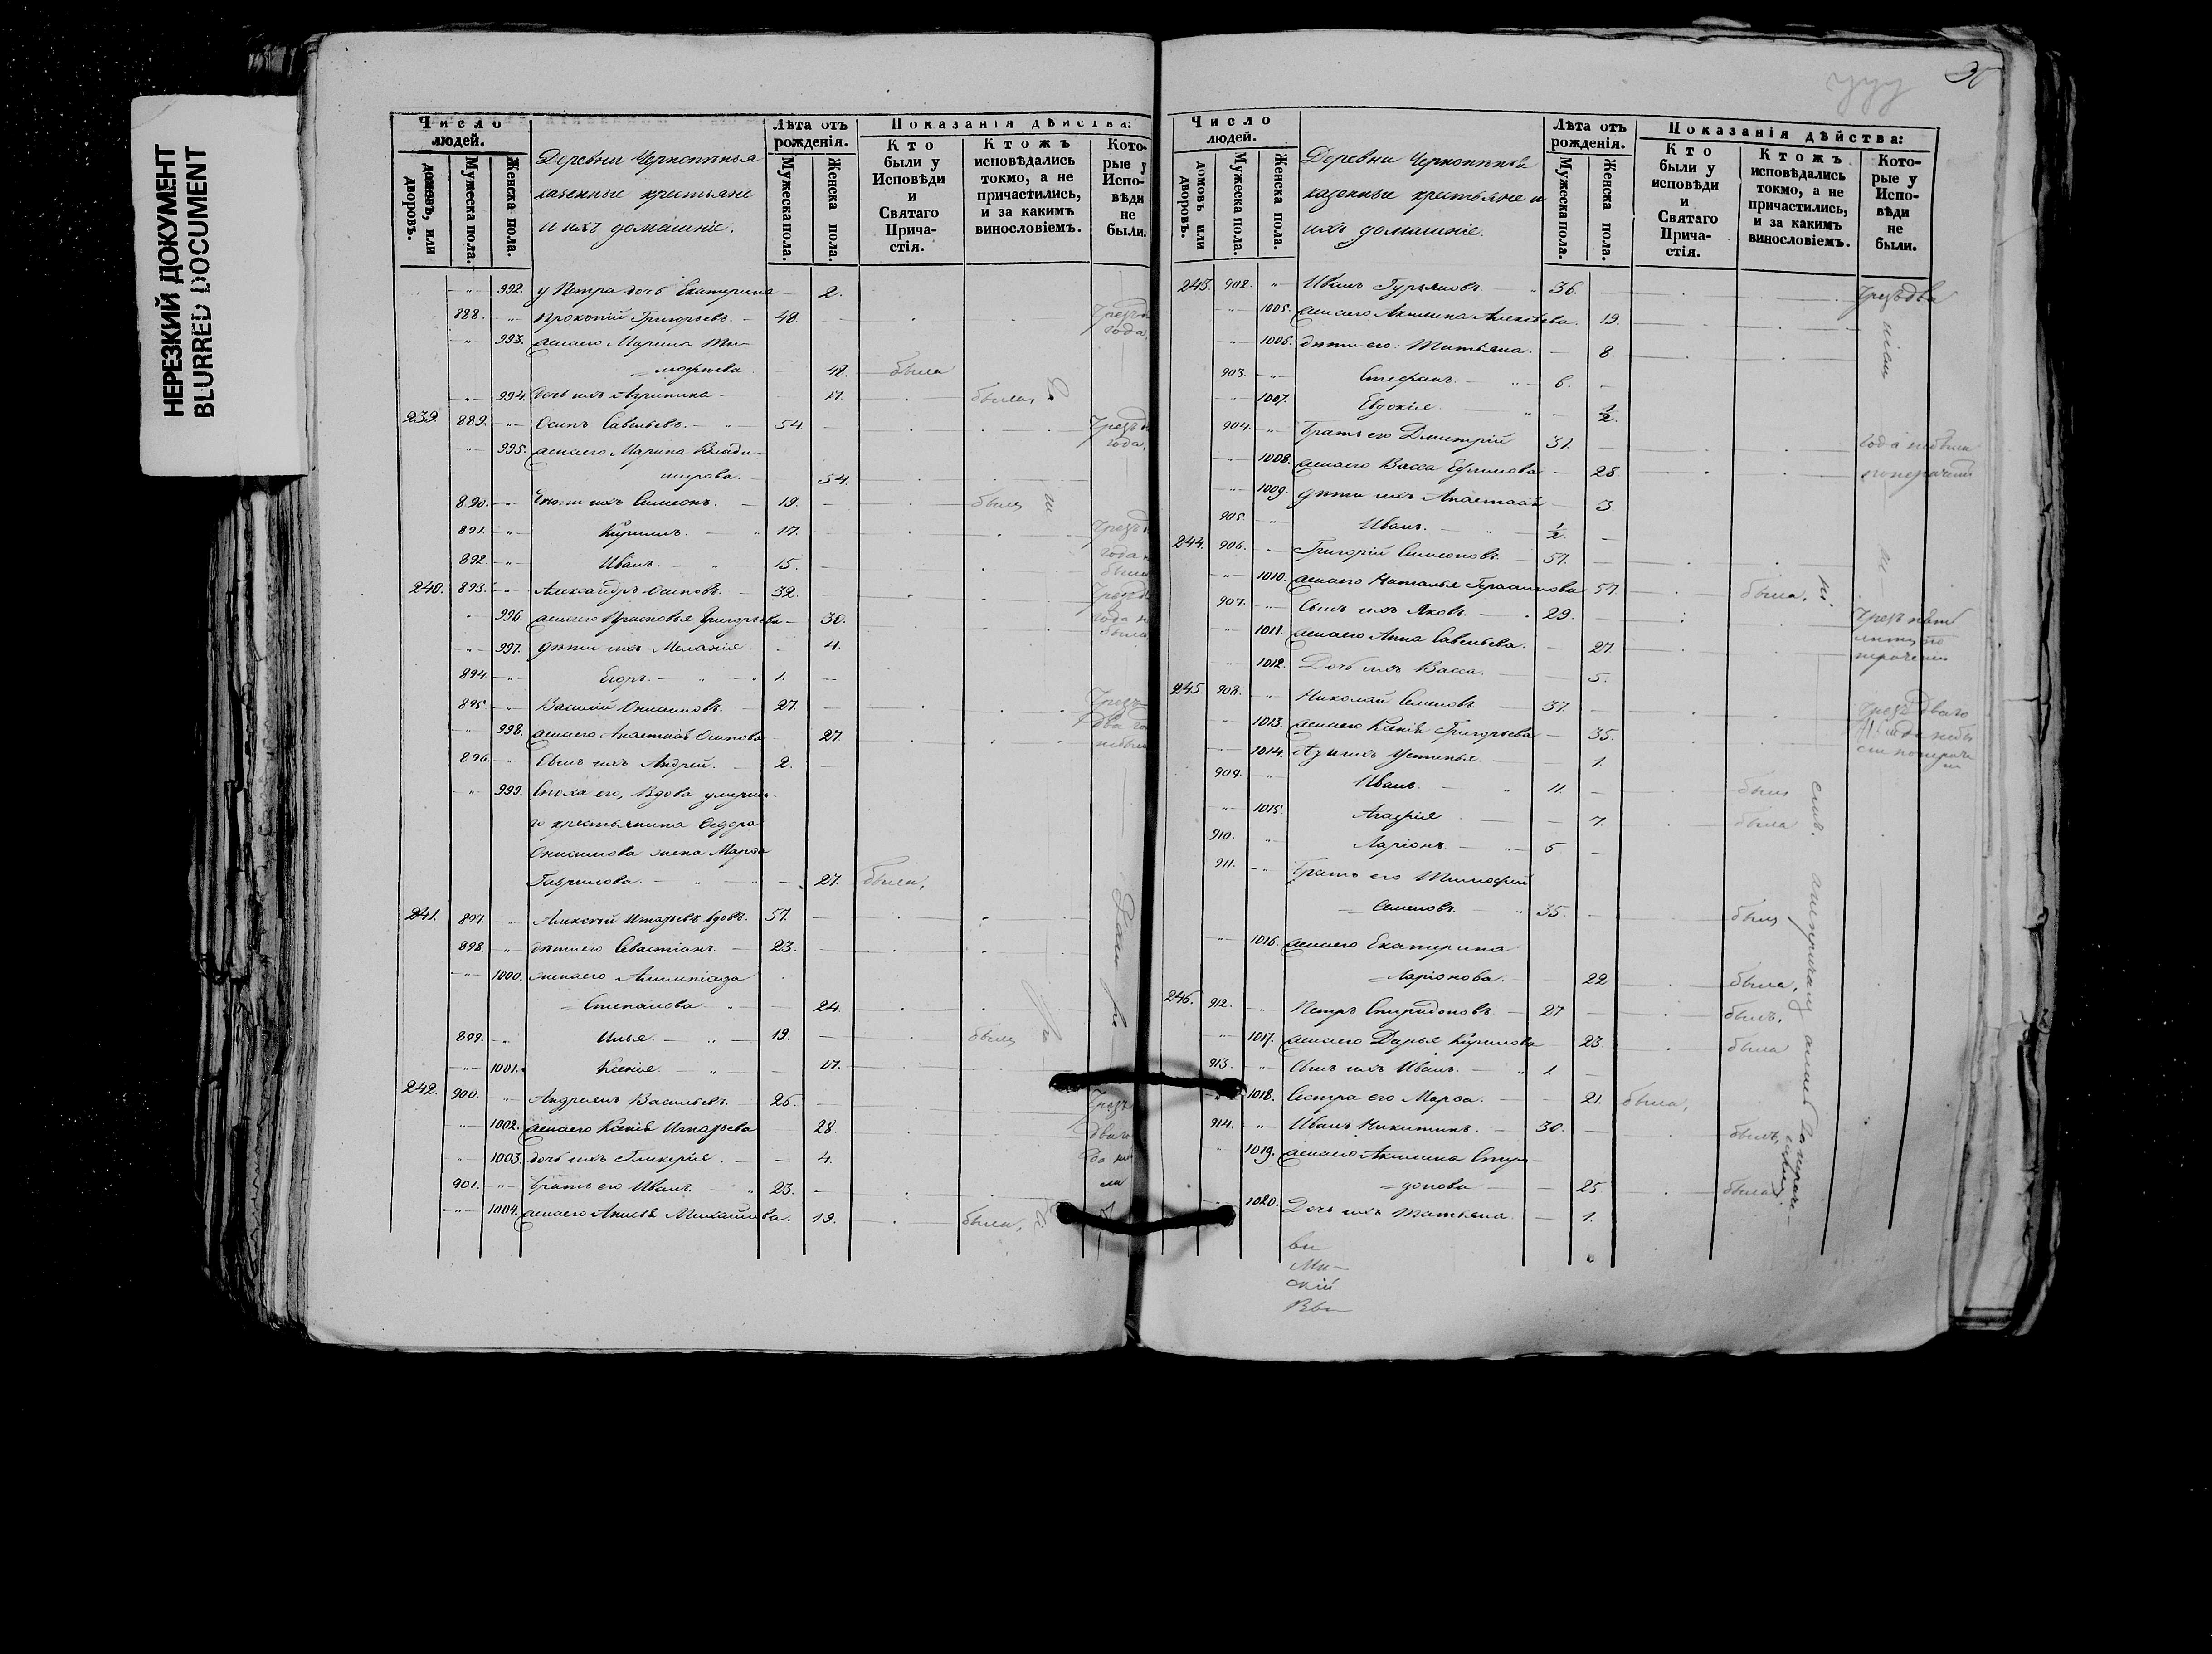 НЕРЕЗКИЙ ДОКУМЕНТ
BLURRED DOCUMENT
Число людей.
домовъ, или дворовъ.
Мужеска пола.
Женска пола.
казенные крестьяне
и ихъ домашніе.
Лѣта отъ рожденія.
Мужеска пола.
Женска пола.
Показанія дѣйства:
Кто были у Исповѣди и Святаго Прича-стія.
Ктожъ исповѣдались токмо, а не причастились, и за какимъ винословіемъ.
Кото-рые у Испо-вѣди не были.
992. у Петра дочь Екатерина 2.
888. Прокопій Григорьевъ. 48.
993. жена его Марина Ти-
=мофеева 48. была
994. дочь ихъ 17. была,
239. 889. Осипъ Савельевъ. 54
995. жена его Марина Влади-
мирова. 54.
890. Дѣти ихъ Симеонъ. 19. былъ
891. Кирилъ. 17.
892. Иванъ. 15.
240. 893. Александръ Осиповъ. 32.
996. жена его Прасковья Григорьева 30.
997. дѣти ихъ Меланія 4.
894. Егоръ. 1.
895. Василій Онисимовъ. 27.
998. жена его Анастасія Осипова 27.
896. Сынъ ихъ Андрей. 2.
999. Сноха его, вдова умерша-
го крестьянина
Онисимова жена Марѳа
Гаврилова. 27. была,
241. 897. Алексѣй Игнатьевъ вдовъ. 57.
898. дѣти его Севастіанъ. 23.
1000. жена его Олимпіада
=Степанова 24.
899. Илья. 19. былъ
1001. Ксенія. 17.
242. 900. Андреянъ Васильевъ. 26.
1002. жена его Ксенія Игнатьева 28.
1003. дочь ихъ Гликерія. 4.
901. Братъ его Иванъ. 23.
1004. жена его Анисья Михайлова. 19. была,
90
Число людей.
домовъ или дворовъ.
Мужеска пола.
Женска пола.
казенные крестьяне и
ихъ домашніе.
Лѣта отъ рожденія.
Мужеска пола.
Женска пола.
Показанія дѣйства:
Кто были у исповѣди и Святаго Прича-стія.
Ктожъ исповѣдались токмо, а не причастились, и за какимъ винословіемъ.
Кото-рые у Испо-вѣди не были.
243. 902. Иванъ Гурьяновъ 36. Чрезъ два
1005. жена его Акилина Алексѣева. 19.
1006. дѣти его: Татьяна. 8.
903. Стефанъ. 6.
1007. Евдокія 1/2.
904. Братъ его Дмитрій 31.
1008. жена его Васса Ефимова 28
1009. дѣти ихъ Анастасія 3
905. Иванъ. 1/2
244. 906. Григорій Симеоновъ. 57.
1010. жена его Наталья Герасимова 57 была,
907. Сынъ ихъ Яковъ. 29.
1011. жена его Анна Савельева. 27.
1012. Дочь ихъ Васса. 5.
245. 908. Николай Семеновъ. 37.
1013. жена его Ксенія Григорьева 35.
1014. Дѣти ихъ Устинья 1.
909. Иванъ 11. былъ
1015. Агафія 7. была
910. Ларіонъ. 5
911. Братъ его Тимофей
=Семеновъ. 35. былъ
1016. жена его Екатерина
=Ларіонова. 22 была,
246. 912. Петръ Спиридоновъ 27 былъ,
1017. жена его Дарья Кирилова 23. была
913. Сынъ ихъ Иванъ. 1.
1018. Сестра его Марѳа. 21. была,
914. Иванъ Никитинъ. 30. былъ,
1019. жена его Акилина Спири-
=донова 25 была
1020. Дочь ихъ Татьяна. 1.